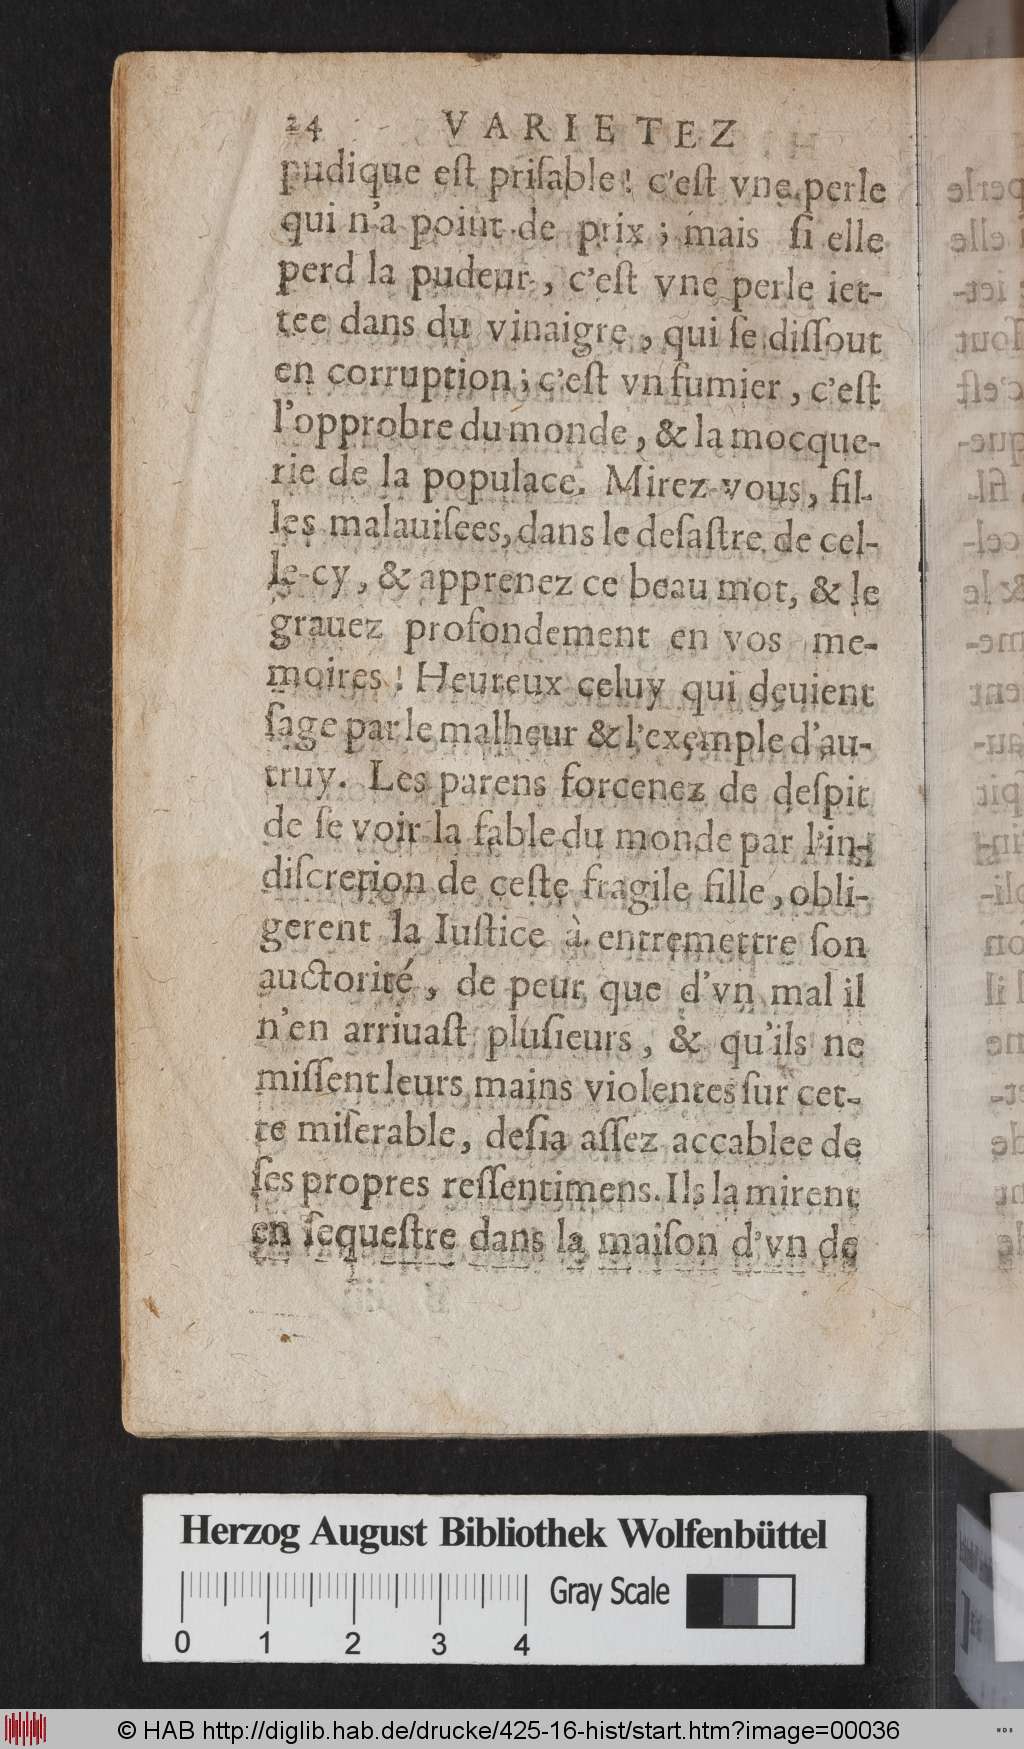 24 VARIETEZ
pudique eſt priſable! c'eſt vne perle
qui n'a point de prix; mais ſi elle
perd la pudeur, c'eſt vne perle iet-
tee dans du vinaigre, qui ſe diſſout
en corruption; c'eſt vn fumier, c'eſt
l'opprobre du monde, & la mocque-
rie de la populace. Mirez-vous, fil-
les malauiſees, dans le deſaſtre de cel-
le-cy, & apprenez ce beau mot, & le
grauez profondement en vos me-
moires! Heureux celuy qui deuient
ſage par le malheur & l'exemple d'au-
truy. Les parens forcenez de deſpit
de ſe voir la fable du monde par l'in-
diſcretion de ceſte fragile fille, obli-
gerent la Iuſtice à entremettre ſon
auctorité, de peur que d'vn mal il
n'en arriuaſt pluſieurs, & qu'ils ne
miſſent leurs mains violentes ſur cet-
te miſerable, deſia aſſez accablee de
ſes propres reſſentimens. Ils la mirent
en ſequeſtre dans la maiſon d'vn de
Herzog August Bibliothek Wolfenbüttel
Gray Scale
0 1 2 3 4
© HAB http://diglib.hab.de/drucke/425-16-hist/start.htm?image=00036